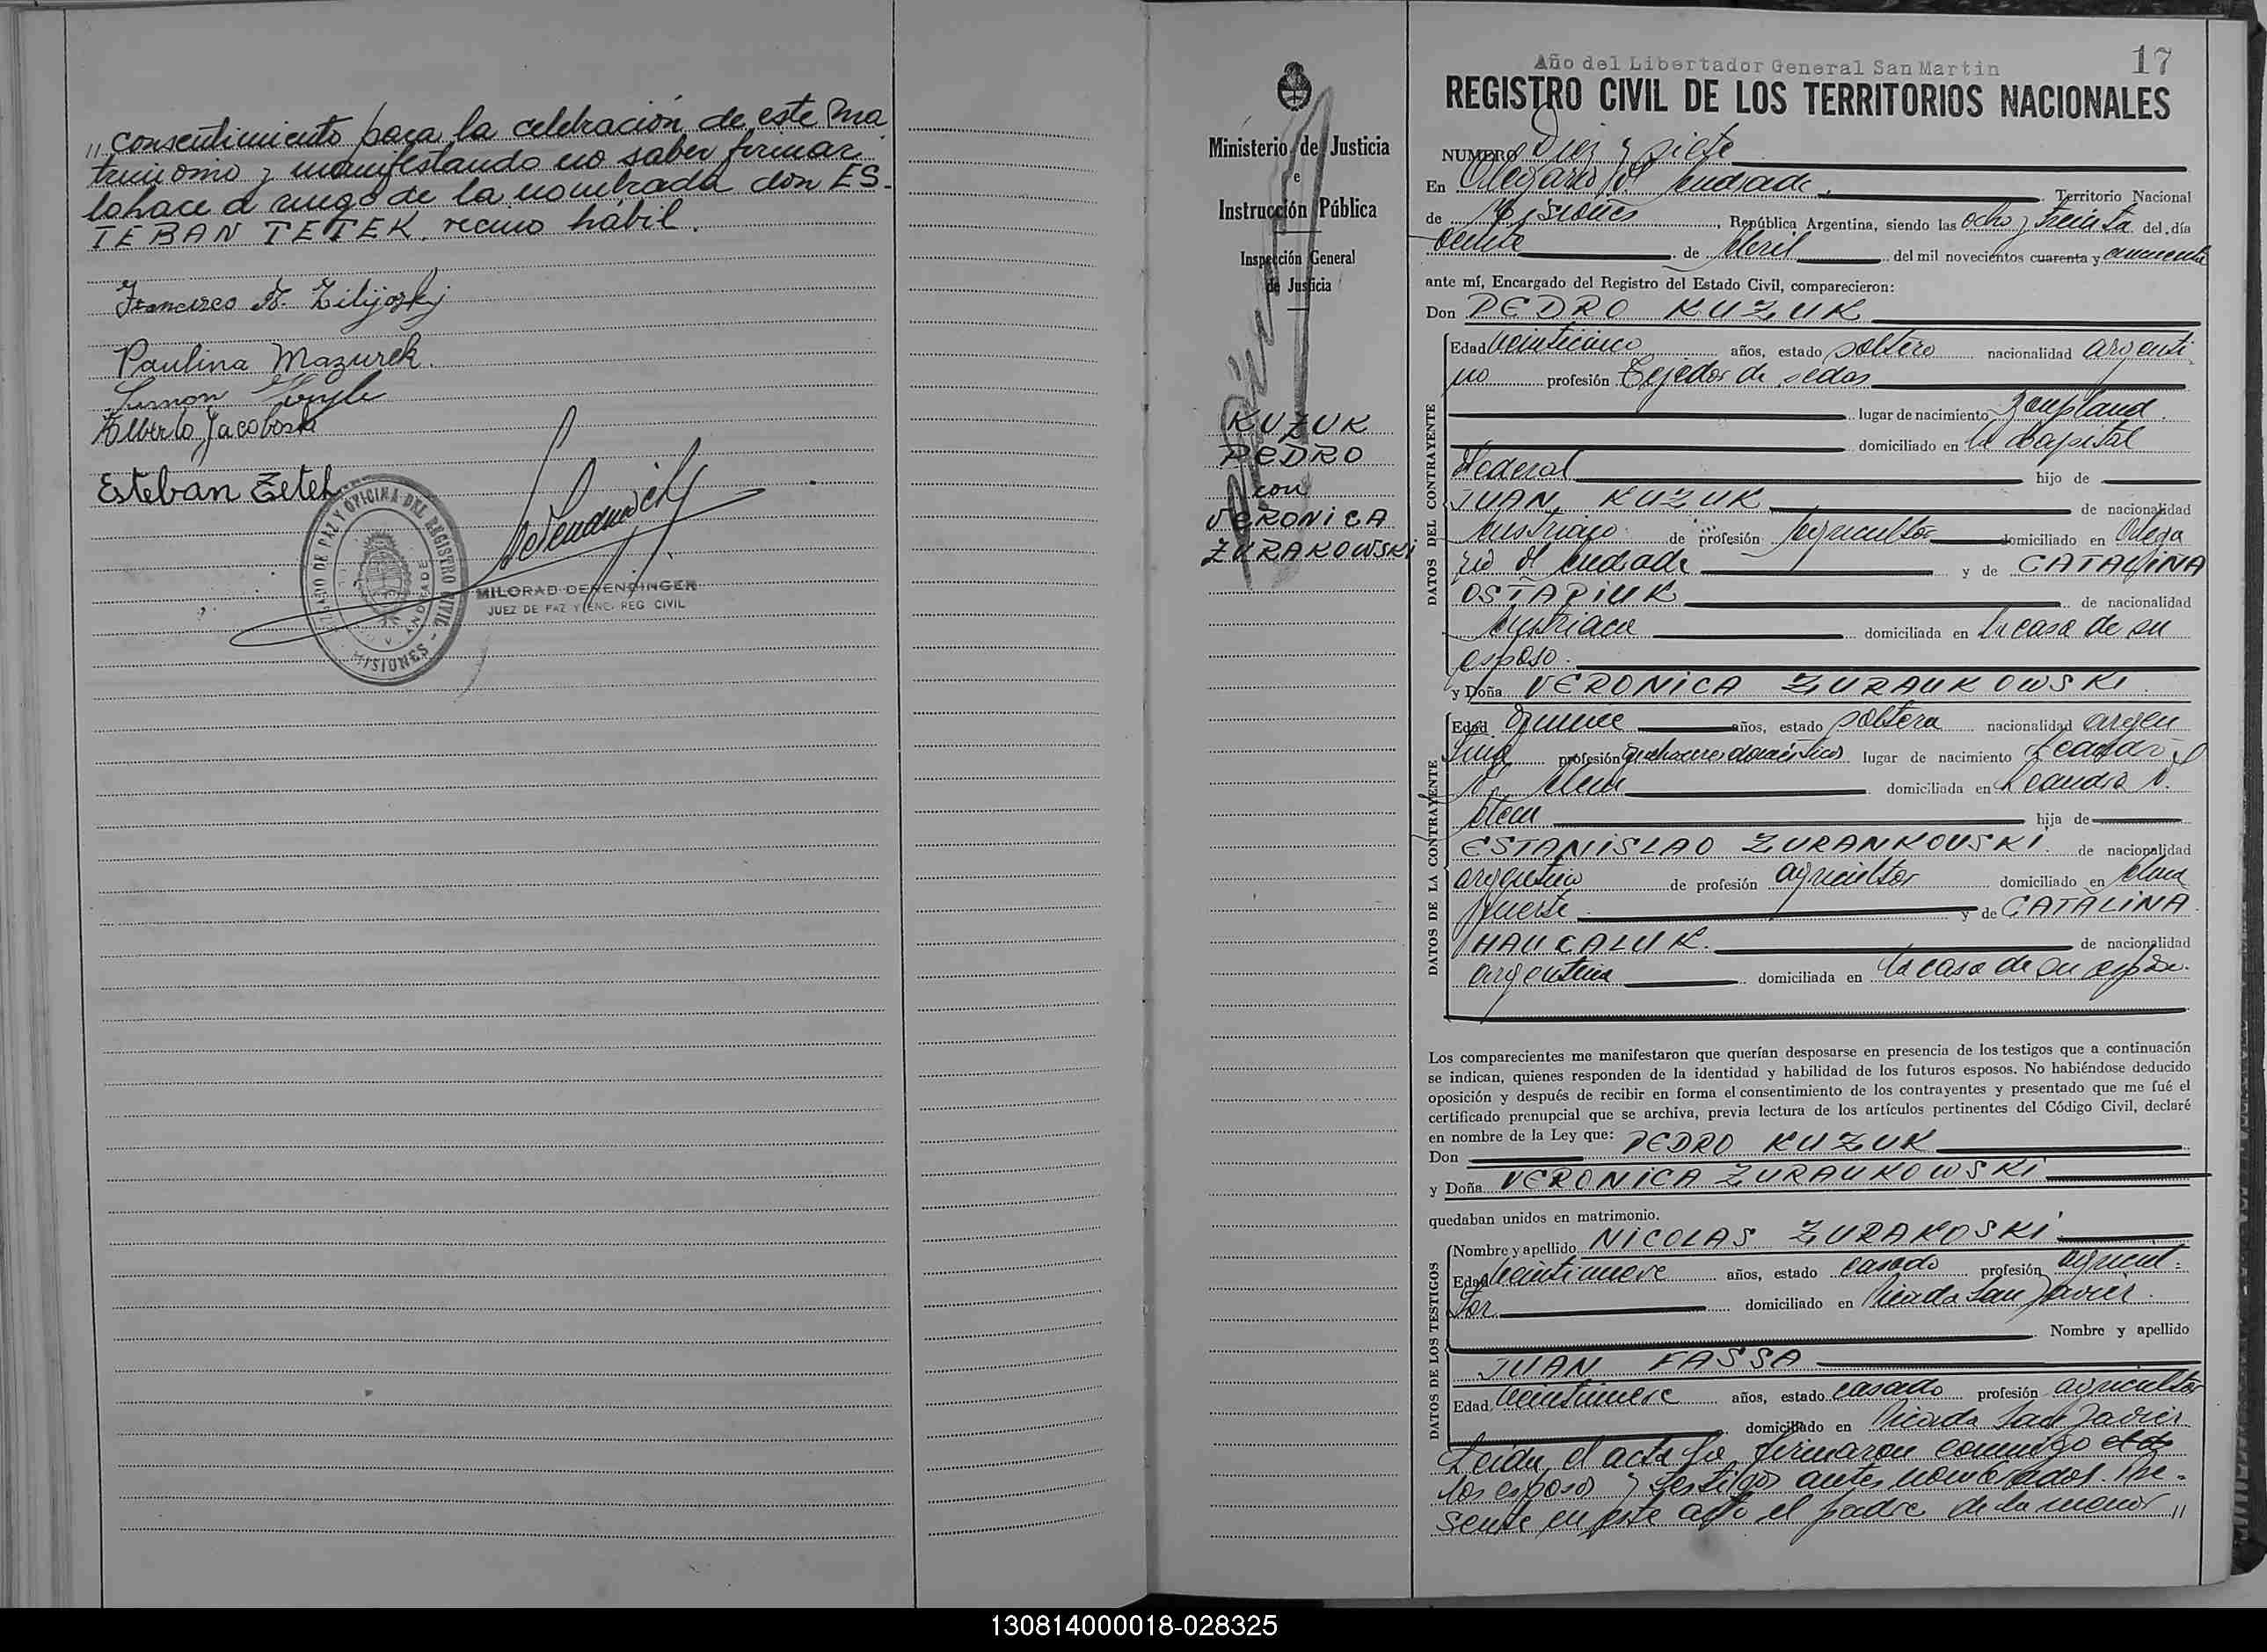 " consentimiento para la celebración de este ma
trimonio y manifestando no saber firmar
lo hace a ruego de la nombrada don ES-
TEBAN TETEK. vecino hábil.
Francisco
Paulina Mazurek.
Simon
Alberto Jacoboski
Esteban Zetek
JUZGADO DE PAZ Y OFICINA DEL REGISTRO CIVIL - MISIONES
MILORAD DEKENDINGER
JUEZ DE PAZ Y ENC. REG CIVIL
Ministerio de Justicia
e
Instrucción Pública
Inspección General
de Justicia
KUZUK
PEDRO
con
VERONICA
ZURAKOWSKI
17
Año del Libertador General San Martin
REGISTRO CIVIL DE LOS TERRITORIOS NACIONALES
NUMERO Diez y siete
En Olegario V. Andrade, Territorio Nacional
de Misiones, República Argentina, siendo las ocho y treinta del día
veinte de Abril del mil novecientos cuarenta y cincuenta
ante mí, Encargado del Registro del Estado Civil, comparecieron:
Don PEDRO KUZUK
DATOS DEL CONTRAYENTE
Edad veinticinco años, estado soltero nacionalidad argenti
no profesión Tejedor de sedas
lugar de nacimiento
domiciliado en la Capital
Federal hijo de
JUAN KUZUK de nacionalidad
Austriaco de profesión Agricultor domiciliado en Olega
rio V. Andrade y de CATALINA
OSTAPIUK de nacionalidad
Austriaca domiciliada en la casa de su
esposo.
y Doña VERONICA ZURAUKOWSKI.
DATOS DE LA CONTRAYENTE
Edad quince años, estado soltera nacionalidad argen
tina profesión quehaceres domésticos lugar de nacimiento Leandro
N. Alem domiciliada en Leandro N.
Alem hija de
ESTANISLAO ZURANKOUSKI. de nacionalidad
argentino de profesión agricultor domiciliado en Alma
fuerte y de CATALINA
HAUCALUK. de nacionalidad
argentina domiciliada en la casa de su esposo.
Los comparecientes me manifestaron que querían desposarse en presencia de los testigos que a continuación
se indican, quienes responden de la identidad y habilidad de los futuros esposos. No habiéndose deducido
oposición y después de recibir en forma el consentimiento de los contrayentes y presentado que me fué el
certificado prenupcial que se archiva, previa lectura de los artículos pertinentes del Código Civil, declaré
en nombre de la Ley que:
Don PEDRO KUZUK
y Doña VERONICA ZURAUKOWSKI
quedaban unidos en matrimonio.
DATOS DE LOS TESTIGOS
Nombre y apellido NICOLAS ZURAKOSKI
Edad veintinueve años, estado casado profesión agricul-
tor domiciliado en Picada San Javier.
Nombre y apellido
JUAN FASSA
Edad veintinueve años, estado casado profesión agricultor
domiciliado en Picada San Javier
Leida el acta la firmaron conmigo
los esposos y testigos antes nombrados. Pre-
sente en este acto el padre de la menor "
130814000018-028325